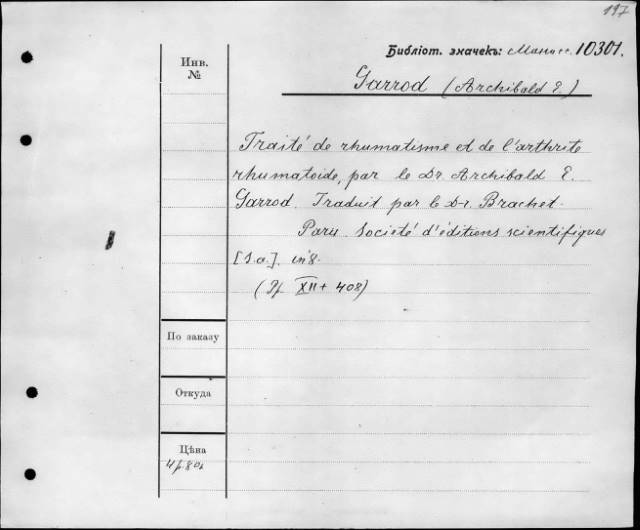 197
Библіот. значекъ: 10301.
Инв.
№
Garrod (Archibald E.)
Traité de rhumatisme et de l'arthrite
rhumatoide, par le Dr. Archibald E.
Garrod. Traduit par le Dr. Brachet.
Paris. Societé d'éditions scientifiques
[S.a.]. in 8.
XII + 408)
По заказу
Откуда
Цѣна